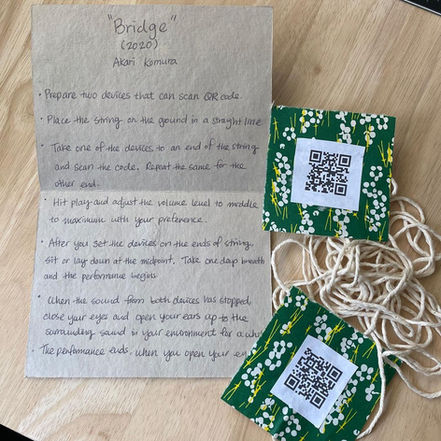 "Bridge"
(2020)
Akari Komura
• Prepare two devices that can scan QR code.
• Place the string on the ground in a straight line
• Take one of the devices to an end of the string
and scan the code. Repeat the same for the
other end.
• Hit play and adjust the volume level to middle
to maximum with your preference.
• After you set the devices on the ends of string,
sit or lay down at the midpoint. Take one deep breath
and the performance begins
• When the sound from both devices has stopped,
close your eyes and open your ears up to the
surrounding sound in your environment for a
• The performance ends when you open your